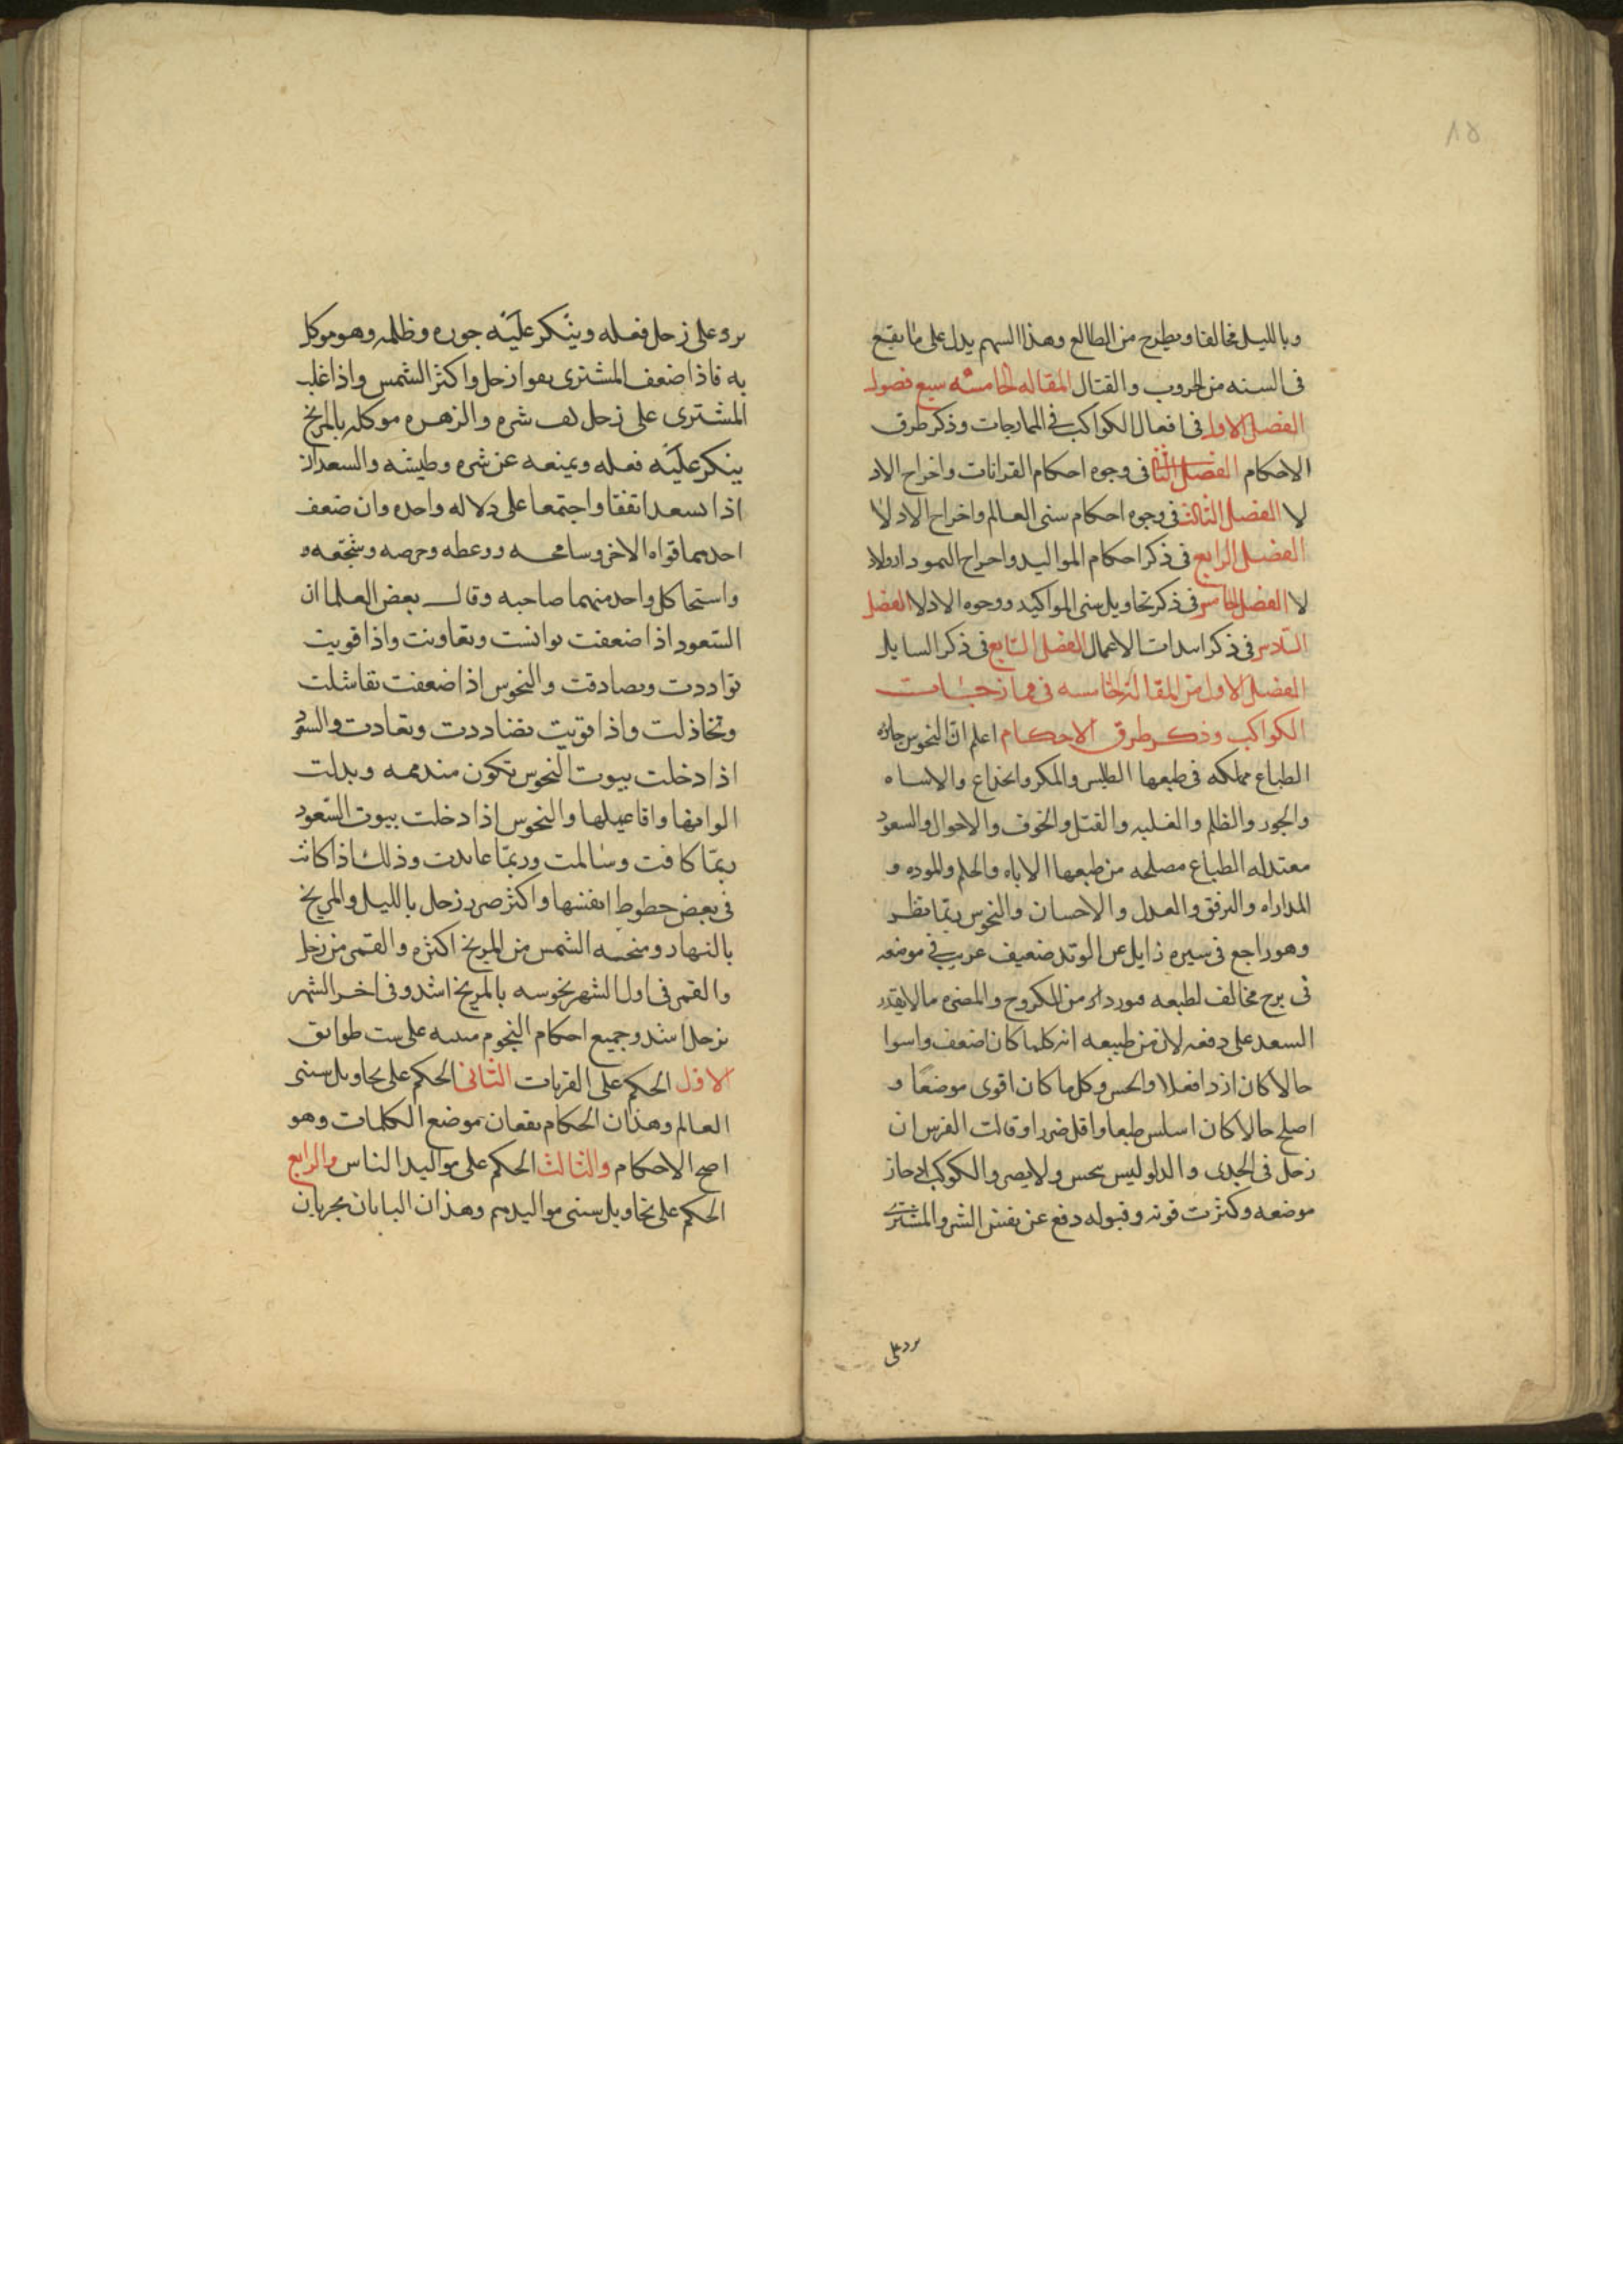 ١٥
وبالليل مخالفا ويطرح من الطالع وهذا السهم يدل على ما يقع
فى السنه من الحروب والقتال المقاله الخامسه سبع فصول
الفصل الاول فى افعال الكواكب فى الممازجات وذكر طرق
الاحكام الفصل الثانى فى وجوه احكام القرانات واخراج الاد
لا الفصل الثالث فى وجوه احكام سنى العالم واخراج الادلا
الفصل الرابع فى ذكر احكام المواليد واخراج النمودار ولاد
لا الفصل الخامس فى ذكر تحاويل سنى المواكيد ووجوه الادلا الفصل
السادس فى ذكر ابتدات الاعمال الفصل السابع فى ذكر السايل
الفصل الاول من المقالة الخامسه فى ممازجات
الكواكب وذكر طرق الاحكام اعلم ان النحوس جائره
الطباع مهلكه فى طبعها الطيس والمكر والخداع والاساه
والجور والظلم والغلبه والقتل والخوف والاحوال والسعود
معتدله الطباع مصلحه من طبعها الاناه والحلم والموده و
المداراه والرفق والعدل والاحسان والنحوس ربما نظر
وهو راجع فى سيره زايل عن الوتد ضعيف غريب فى موضعه
فى برج مخالف لطبعه فيورد من المكروح والمضره مالايقدر
السعد على دفعه لان من طبيعه انه كلما كان اضعف واسوا
حالا كان ازدا فعلا وانحس وكل ما كان اقوى موضعا و
اصلح حالا كان اسلس طبعا واقل ضررا وقالت الفرس ان
زحل فى الجدى والدلو ليس بنحس ولا يضر والكوكب اذ جاز
موضعه وكثرت قوته وقبوله دفع عن نفسه الشر والمشترى
يرد على
يرد على زحل فعله وينكر عليه جوره وظلمه وهو موكل
به فاذا ضعف المشترى يقوا زحل واكثر الشمس واذا غلب
المشترى على زحل كف شره والزهره موكله بالمريخ
ينكر عليه فعله ويمنعه عن شره وطيشه والسعدان
اذا سعدا تفقا واجتمعا على دلاله واحده وان ضعف
احدهما قواه الاخر وسامحه ووعظه وحرصه وشجعه و
واستحا كل واحد منهما صاحبه وقال بعض العلما ان
السعود اذا ضعفت توانست وتعاونت واذا قويت
تواددت وتصادقت والنحوس اذا ضعفت تفاشلت
وتخاذلت واذا قويت تضاددت وتعادت والسعو
اذا دخلت بيوت النحوس تكون مندمه وبدلت
الوانها وافاعيلها والنحوس اذا دخلت بيوت السعود
ربما كافت وسالمت وربما عاندت وذلك اذا كانت
فى بعض حطوط انفسها واكثر ضرر زحل بالليل والمريخ
بالنهار ومنحسه الشمس من المريخ اكثره والقمر من زحل
والقمر فى اول الشهر نحوسه بالمريخ اشد وفى اخر الشهر
بزحل اشد وجميع احكام النجوم مبنيه على ست طوابق
الاول الحكم على القربات الثانى الحكم على تحاويل سنى
العالم وهذان الحكام يقعان موضع الكلمات وهو
اصح الاحكام والثالث الحكم على مواليد الناس والرابع
الحكم على تحاويل سنى مواليدهم وهذان البابان يجريان